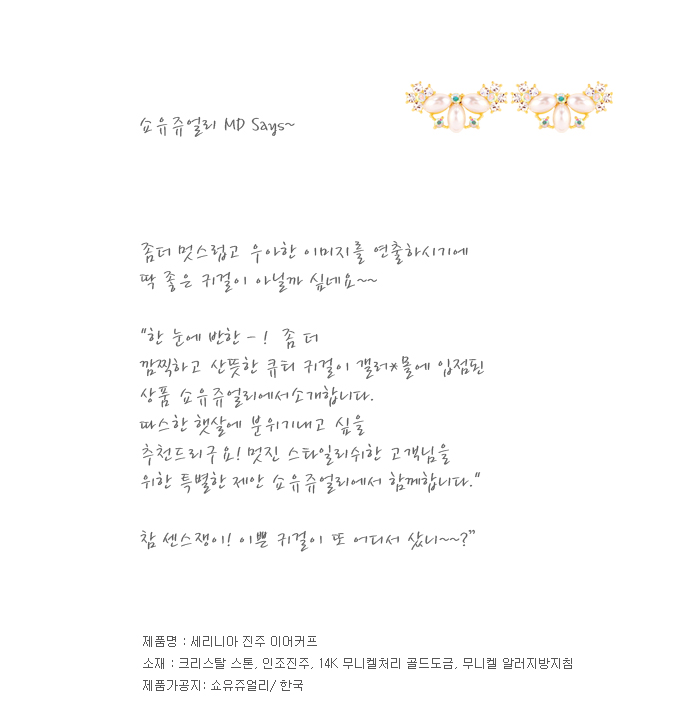 쇼유쥬얼리 MD Says~
좀더 멋스럽고 우아한 이미지를 연출하시기에
딱 좋은 귀걸이 아닐까 싶네요~~
"한 눈에 반한 - ! 좀 더
깜찍하고 산뜻한 큐티 귀걸이 갤러*몰에 입점된
상품 쇼유쥬얼리에서소개합니다.
따스한 햇살에 분위기내고 싶을
추천드리구요! 멋진 스타일리쉬한 고객님을
위한 특별한 제안 쇼유쥬얼리에서 함께합니다."
참 센스쟁이! 이쁜 귀걸이 또 어디서 샀니~~?"
제품명 : 세리니아 진주 이어커프
소재 : 크리스탈 스톤, 인조진주, 14K 무니켈처리 골드도금, 무니켈 알러지방지침
제품가공지: 쇼유쥬얼리/ 한국